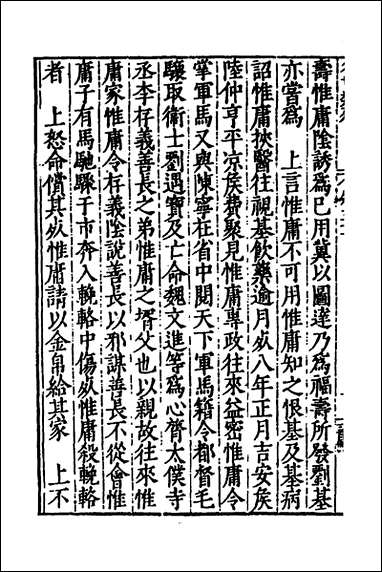 壽惟庸陰誘爲已用冀以圖達乃爲福壽所發劉基
亦嘗爲　上言惟庸不可用惟庸知之恨基及基病
詔惟庸挾醫往視基飲藥逾月𣦸八年正月吉安矦
陸仲亨平凉矦費聚見惟庸專政往來益密惟庸令
掌軍馬又與陳寧在省中閱天下軍馬籍令都督毛
驤取衞士劉遇寶及亡命魏文進等爲心膂太僕寺
丞李存義善長之弟惟庸之壻父也以親故往來惟
庸家惟庸令存義陰說善長以邪謀善長不從會惟
庸子有馬馳驟于市奔入輓輅中傷𣦸惟庸殺輓輅
者　上怒命償其𣦸惟庸請以金帛給其家　上不